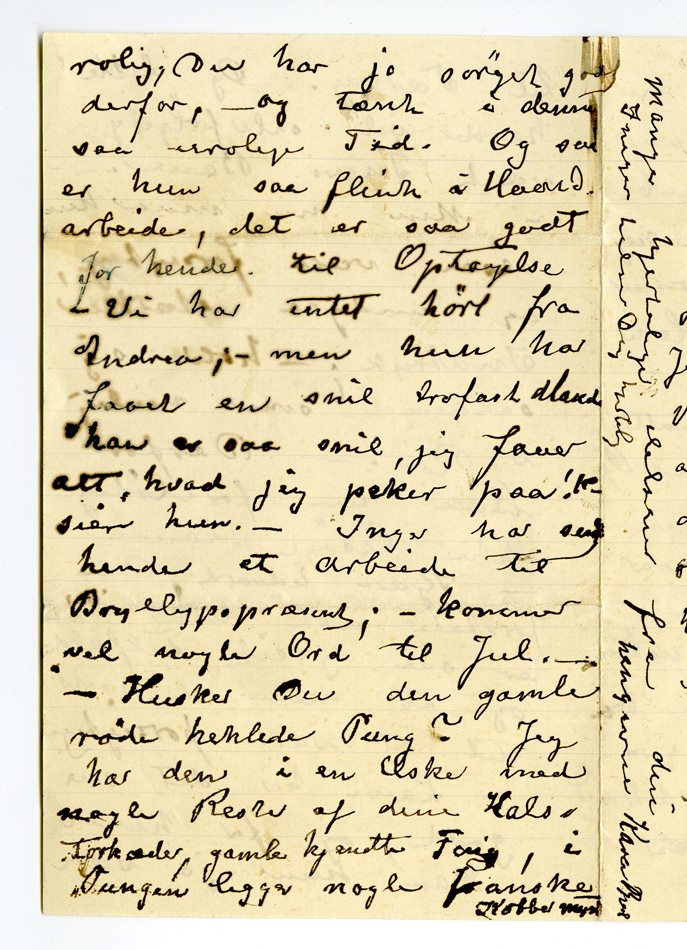 rolig, Du har jo sörget god
derfor, – og tænk i denne
saa urolige Tid. Og saa
er hun saa flink i Haand-
arbeide, det er saa godt
for hende. til Optagelse
– Vi har intet hört fra
Andrea; – men hun har
faaet en snil trofast Mand
"han er saa snil, jeg faaer
alt, hvad jeg peker paa!"
sier hun. – Inga har send
hende et arbeide til
Bryllupspræsent; – kommer
vel nogle Ord til Jul. –
– Husker Du den gamle
röde heklede Pung? Jeg
har den i en Æske med
nogle Rester af dine Hals-
Törkæder, gamle kjendte Töig, i
Pungen ligger nogle franske
Kobber mynt
Mange hjertelige hilsener fra din
hengivne
Inger hilser Dig